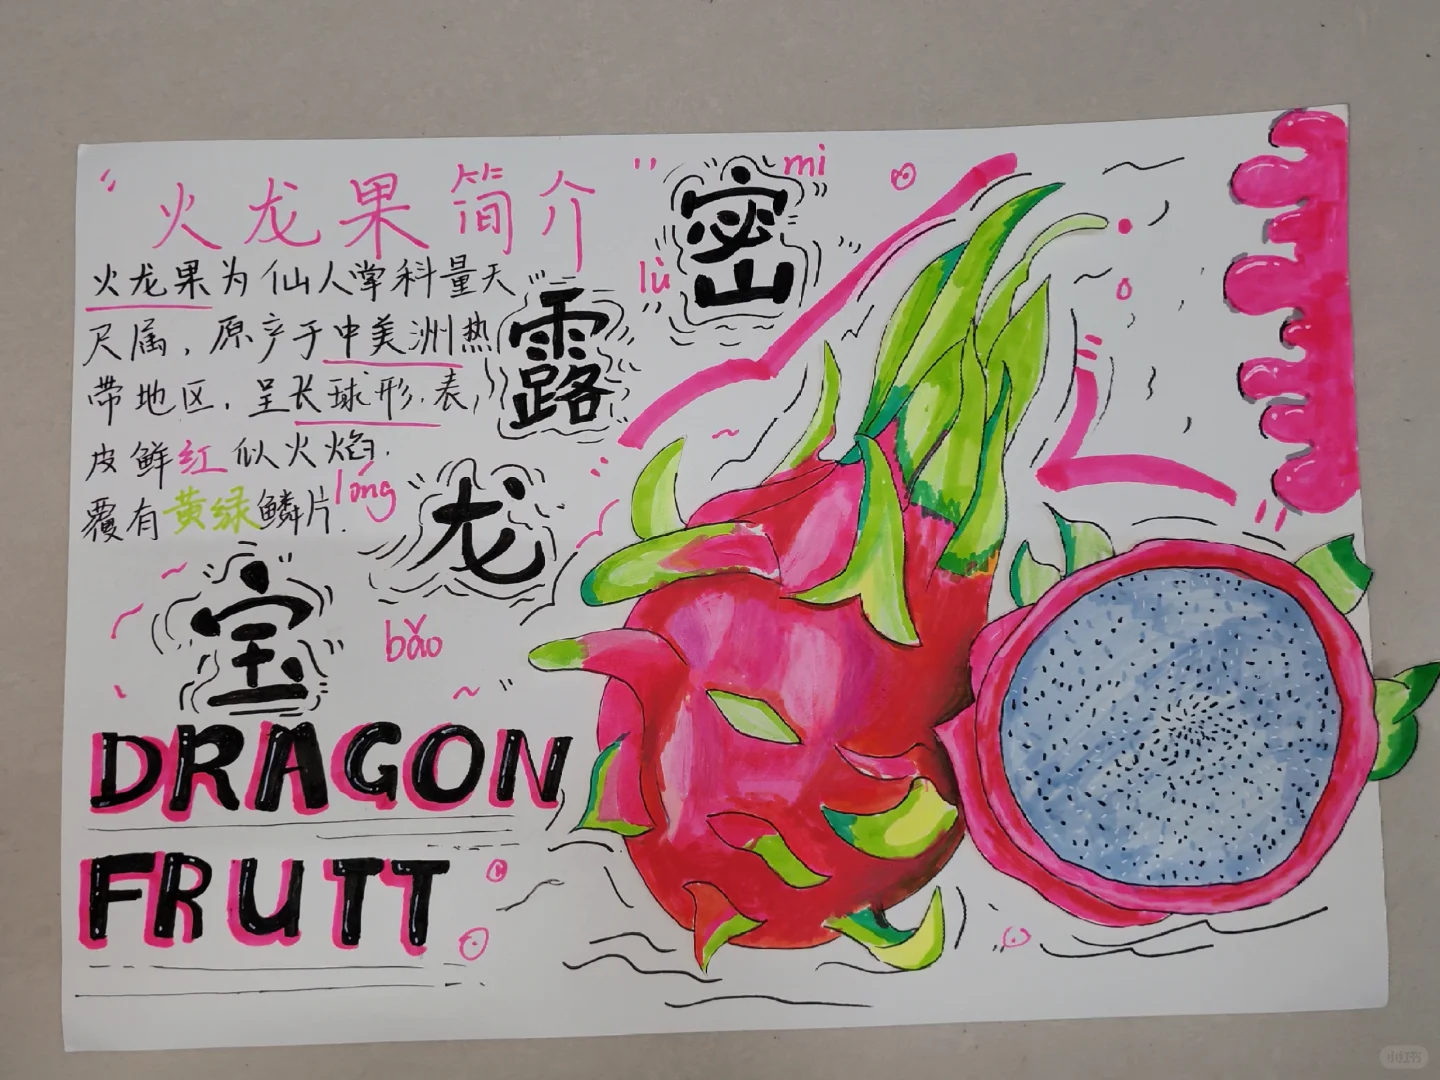 "火龙果简介"
火龙果为仙人掌科量天
尺属，原产于中美洲热
带地区，呈长球形，表
皮鲜红似火焰.
覆有黄绿鳞片.
mi
密
lù
露
lóng
龙
bǎo
宝
DRAGON
FRUIT
小红书